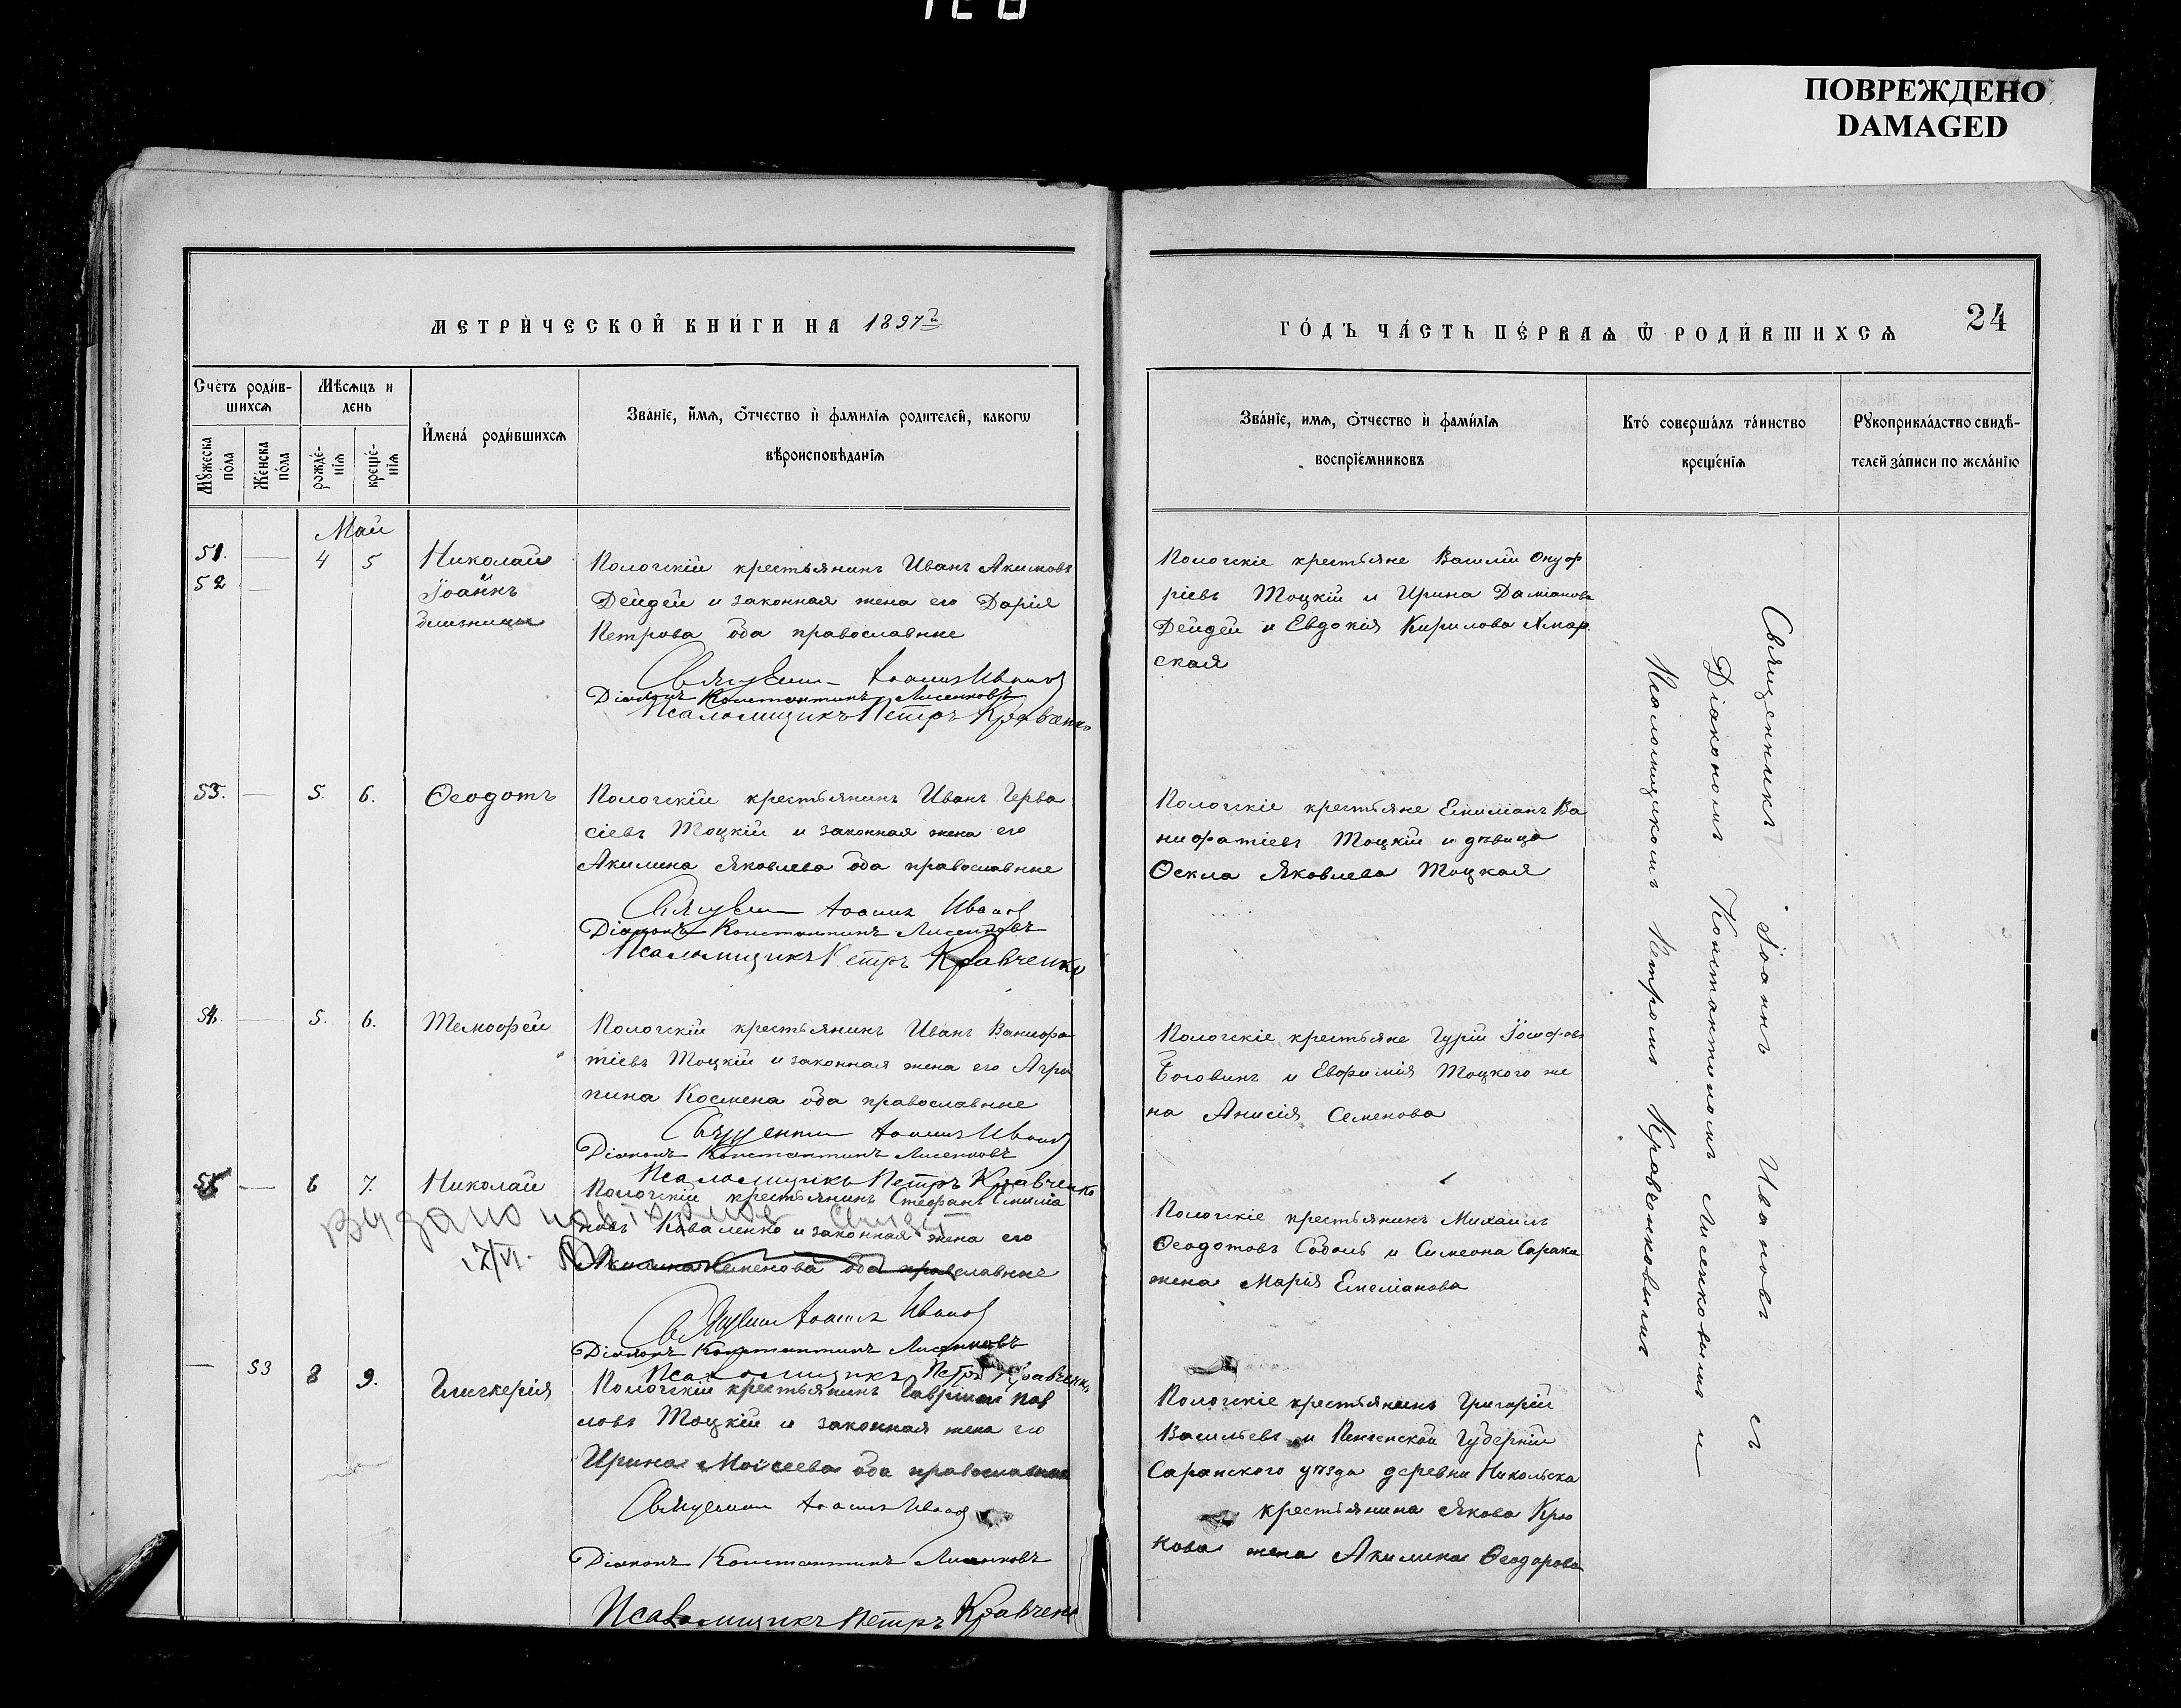 ПОВРЕЖДЕНО
DAMAGED
МЕТРИ́ЧЕСКОЙ КНИ́ГИ НА 1897й
ГО́ДЪ ЧА́СТЬ ПЕ́РВАѦ Ѡ҆ РОДИ́ВШИХСѦ
24
Счетъ роди́в-
шихсѧ
Мꙋжеска
по́ла
Же́нска
по́ла
Мѣ́сѧцъ и
день
рожде́-
нїѧ
креще́-
нїѧ
И҆мена́ роди́вшихсѧ
Зва́нїе, и҆́мѧ, ѻ҆́тчество и҆ фамилїѧ родителей, какогѡ
вѣроисповѣданїѧ
Зва́нїе, имѧ, ѻ҆тчество и҆ фами́лїѧ
воспрїе́мниковъ
Кто́ соверша́лъ та́инство
креще́нїѧ
Рꙋкоприкла́дство свидѣ-
телей за́писи по жела́нїю
Май
51. — 4 5 Николай
52 —
Іоаннъ
близнецы
Пологскій крестьянинъ Иванъ Акимовъ
Дейдей и законная жена его Дарія
Петрова оба православные
Священн Іоаннъ Иванов
Діаконъ Константинъ Лисенковъ
Псаломщикъ Петръ Кравченко
Пологскіе крестьяне Василій Онуф
ріевъ Тоцкій и Ирина Даміанова
Дейдей и Евдокія Кирилова
ская
53. — 5. 6. Ѳеодотъ
Пологскій крестьянинъ Иванъ Герва
сіевъ Тоцкій и законная жена его
Акилина Яковлева оба православные
Священ Іоаннъ Иванов
Діаконъ Константинъ Лисенковъ
Псаломщикъ Петръ Кравченко
Пологскіе крестьяне Емиліанъ Ва
нифатіевъ Тоцкій и дѣвица
Ѳекла Яковлева Тоцкая
54. — 5. 6. Тимофей
Пологскій крестьянинъ Иванъ Ванифа
тіевъ Тоцкій и законная жена его Агри
пина Космена оба православные
Священн Іоаннъ Иванов
Діаконъ Константинъ Лисенковъ
Псаломщикъ Петръ Кравченко
Пологскіе крестьяне Гурій Іосифовъ
Боговинъ и Евфимія Тоцкого же
на Анисія Семенова
55 — 6 7. Николай
Пологскій крестьянинъ Стефанъ Емилiа
новъ Коваленко и законная жена его
Семенова оба православные
Видано
17/VI.
Священ Іоаннъ Иванов
Діаконъ Константинъ Лисенковъ
Псаломщикъ Петръ Кравченко
Пологскіе крестьянинъ Михаилъ
Ѳеодотовъ Соболь и Симеона Сарака
жена Марія Емеліанова
— 53 8 9. Гликерія
Пологскій крестьянинъ Гавріилъ Пав
ловъ Тоцкій и законная жена его
Ирина Моісеева оба православные
Священн Іоаннъ Иванов
Діаконъ Константинъ Лисенковъ
Псаломщикъ Петръ Кравченко
Пологскіе крестьянинъ Григорій
Васильевъ и Пензенской Губерніи
Саранского уѣзда деревни Никольска
крестьянина Якова Крю
кова жена Акилина Ѳеодорова
Священникъ Іоаннъ Ивановъ съ
Діакономъ Константиномъ Лисенковымъ и
Псаломщикомъ Петромъ Кравченковымъ